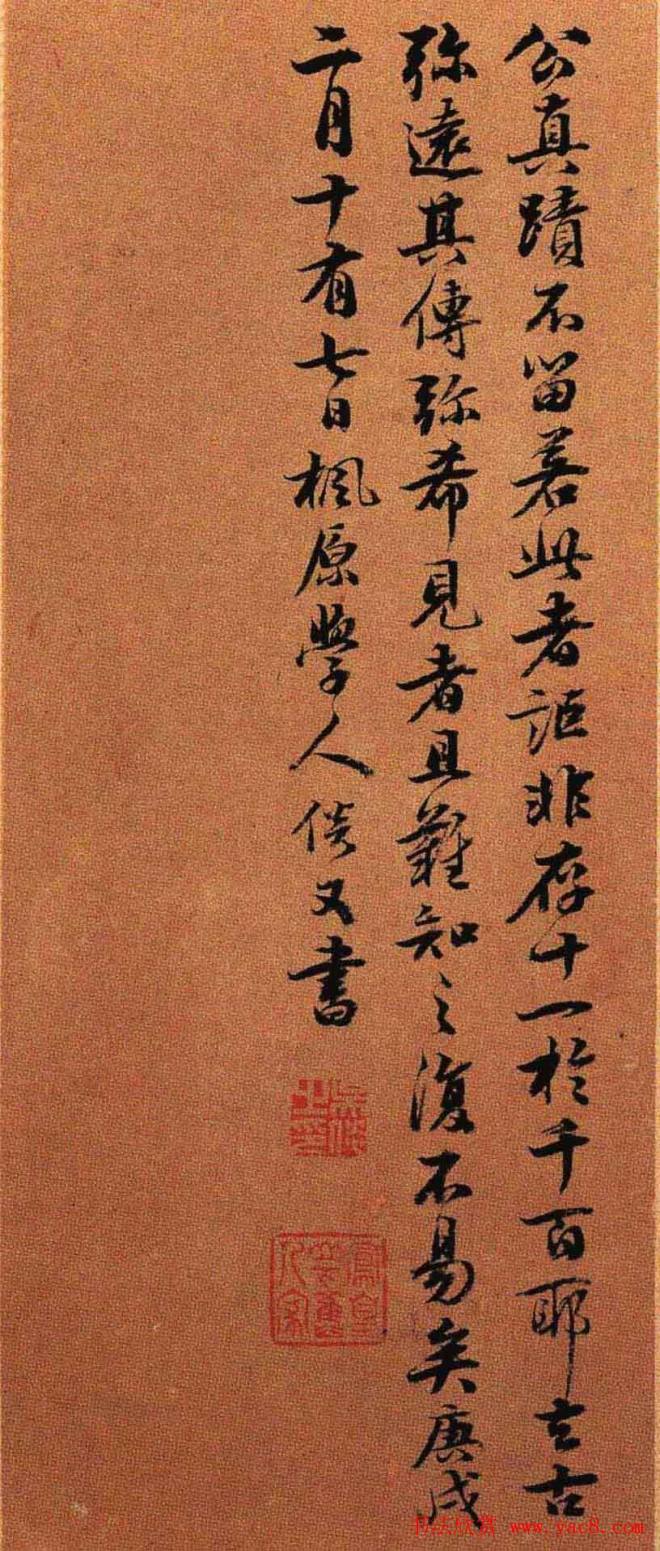 公真蹟不留若此者詎非存十一於千百耶去古
弥遠其傳弥希見者且難知之復不易矣庚戌
二月十有七日楓原學人倓又書
书法欣赏 www.yac8.com